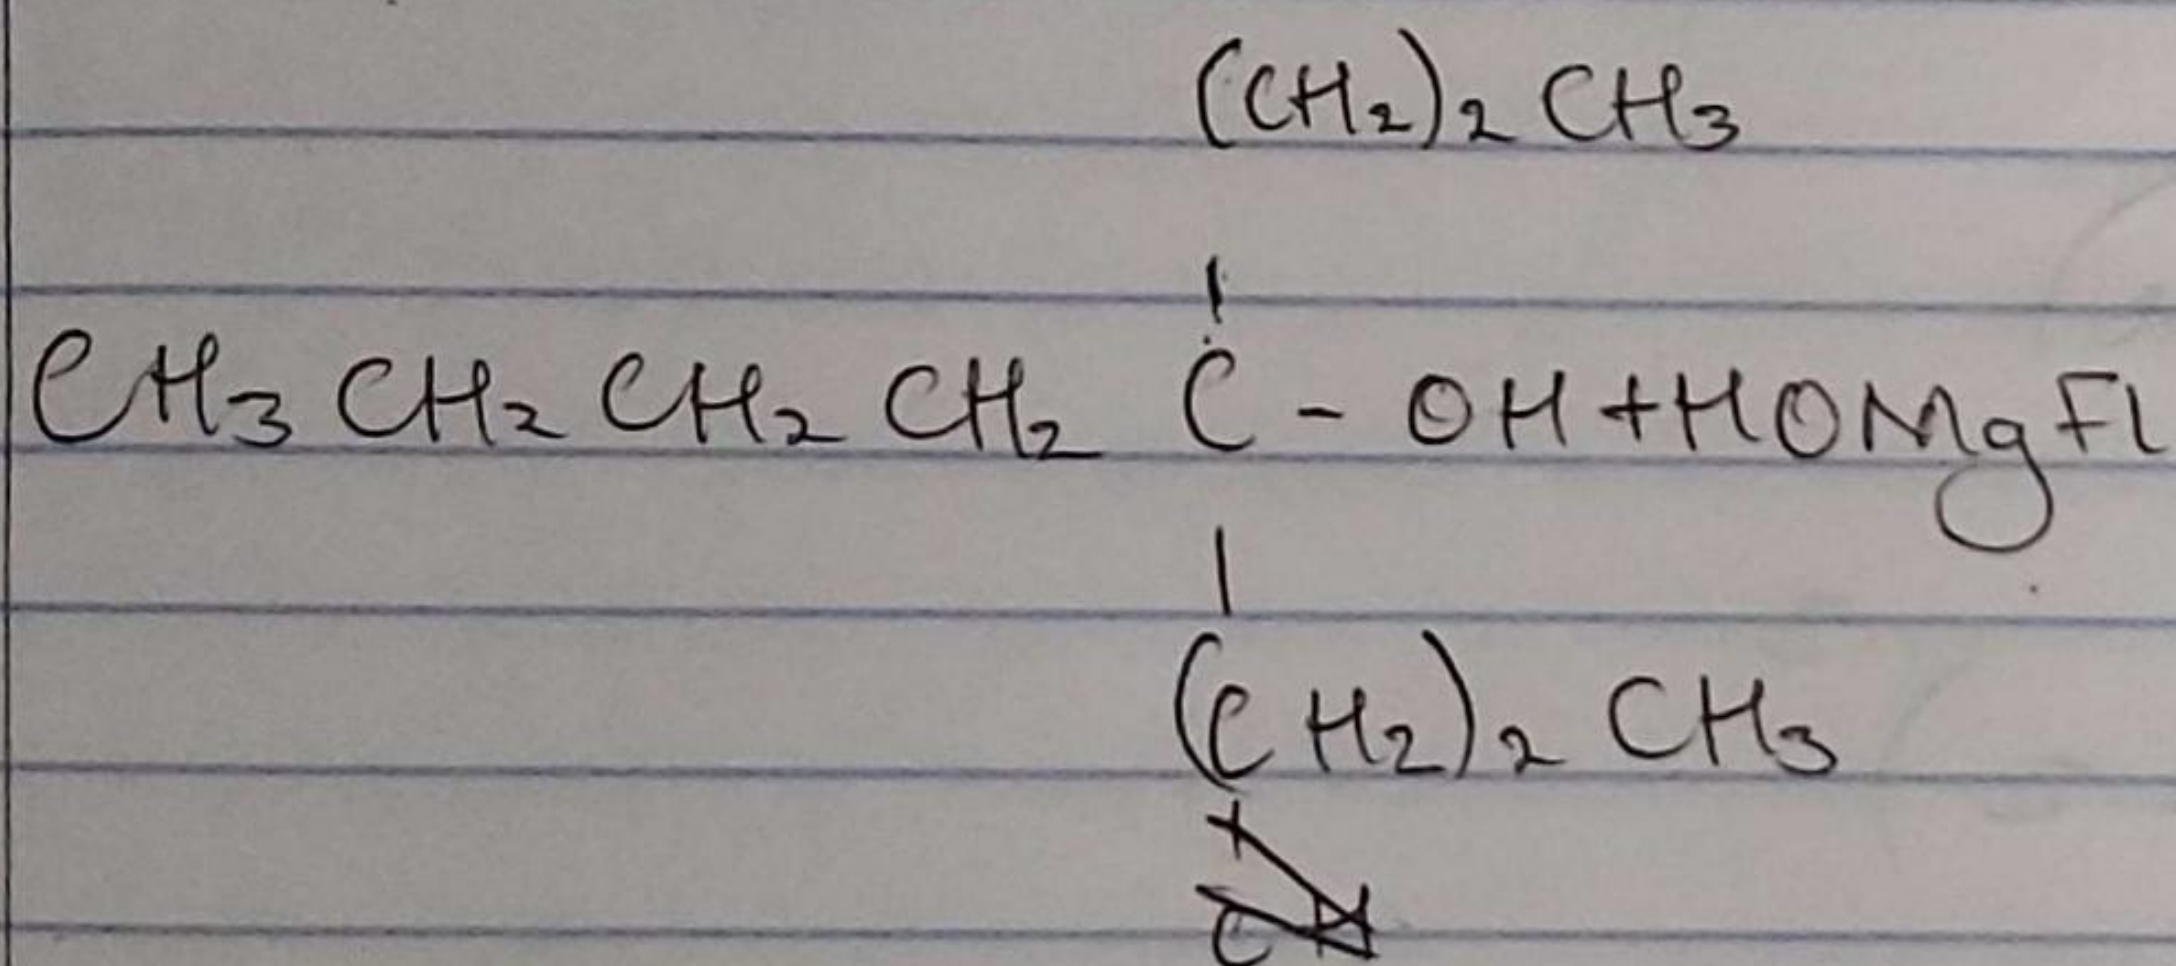 (CH₂)₂ CH₃
|
CH₃ CH₂ CH₂ CH₂ C - OH + HOMgFl
|
(CH₂)₂ CH₃